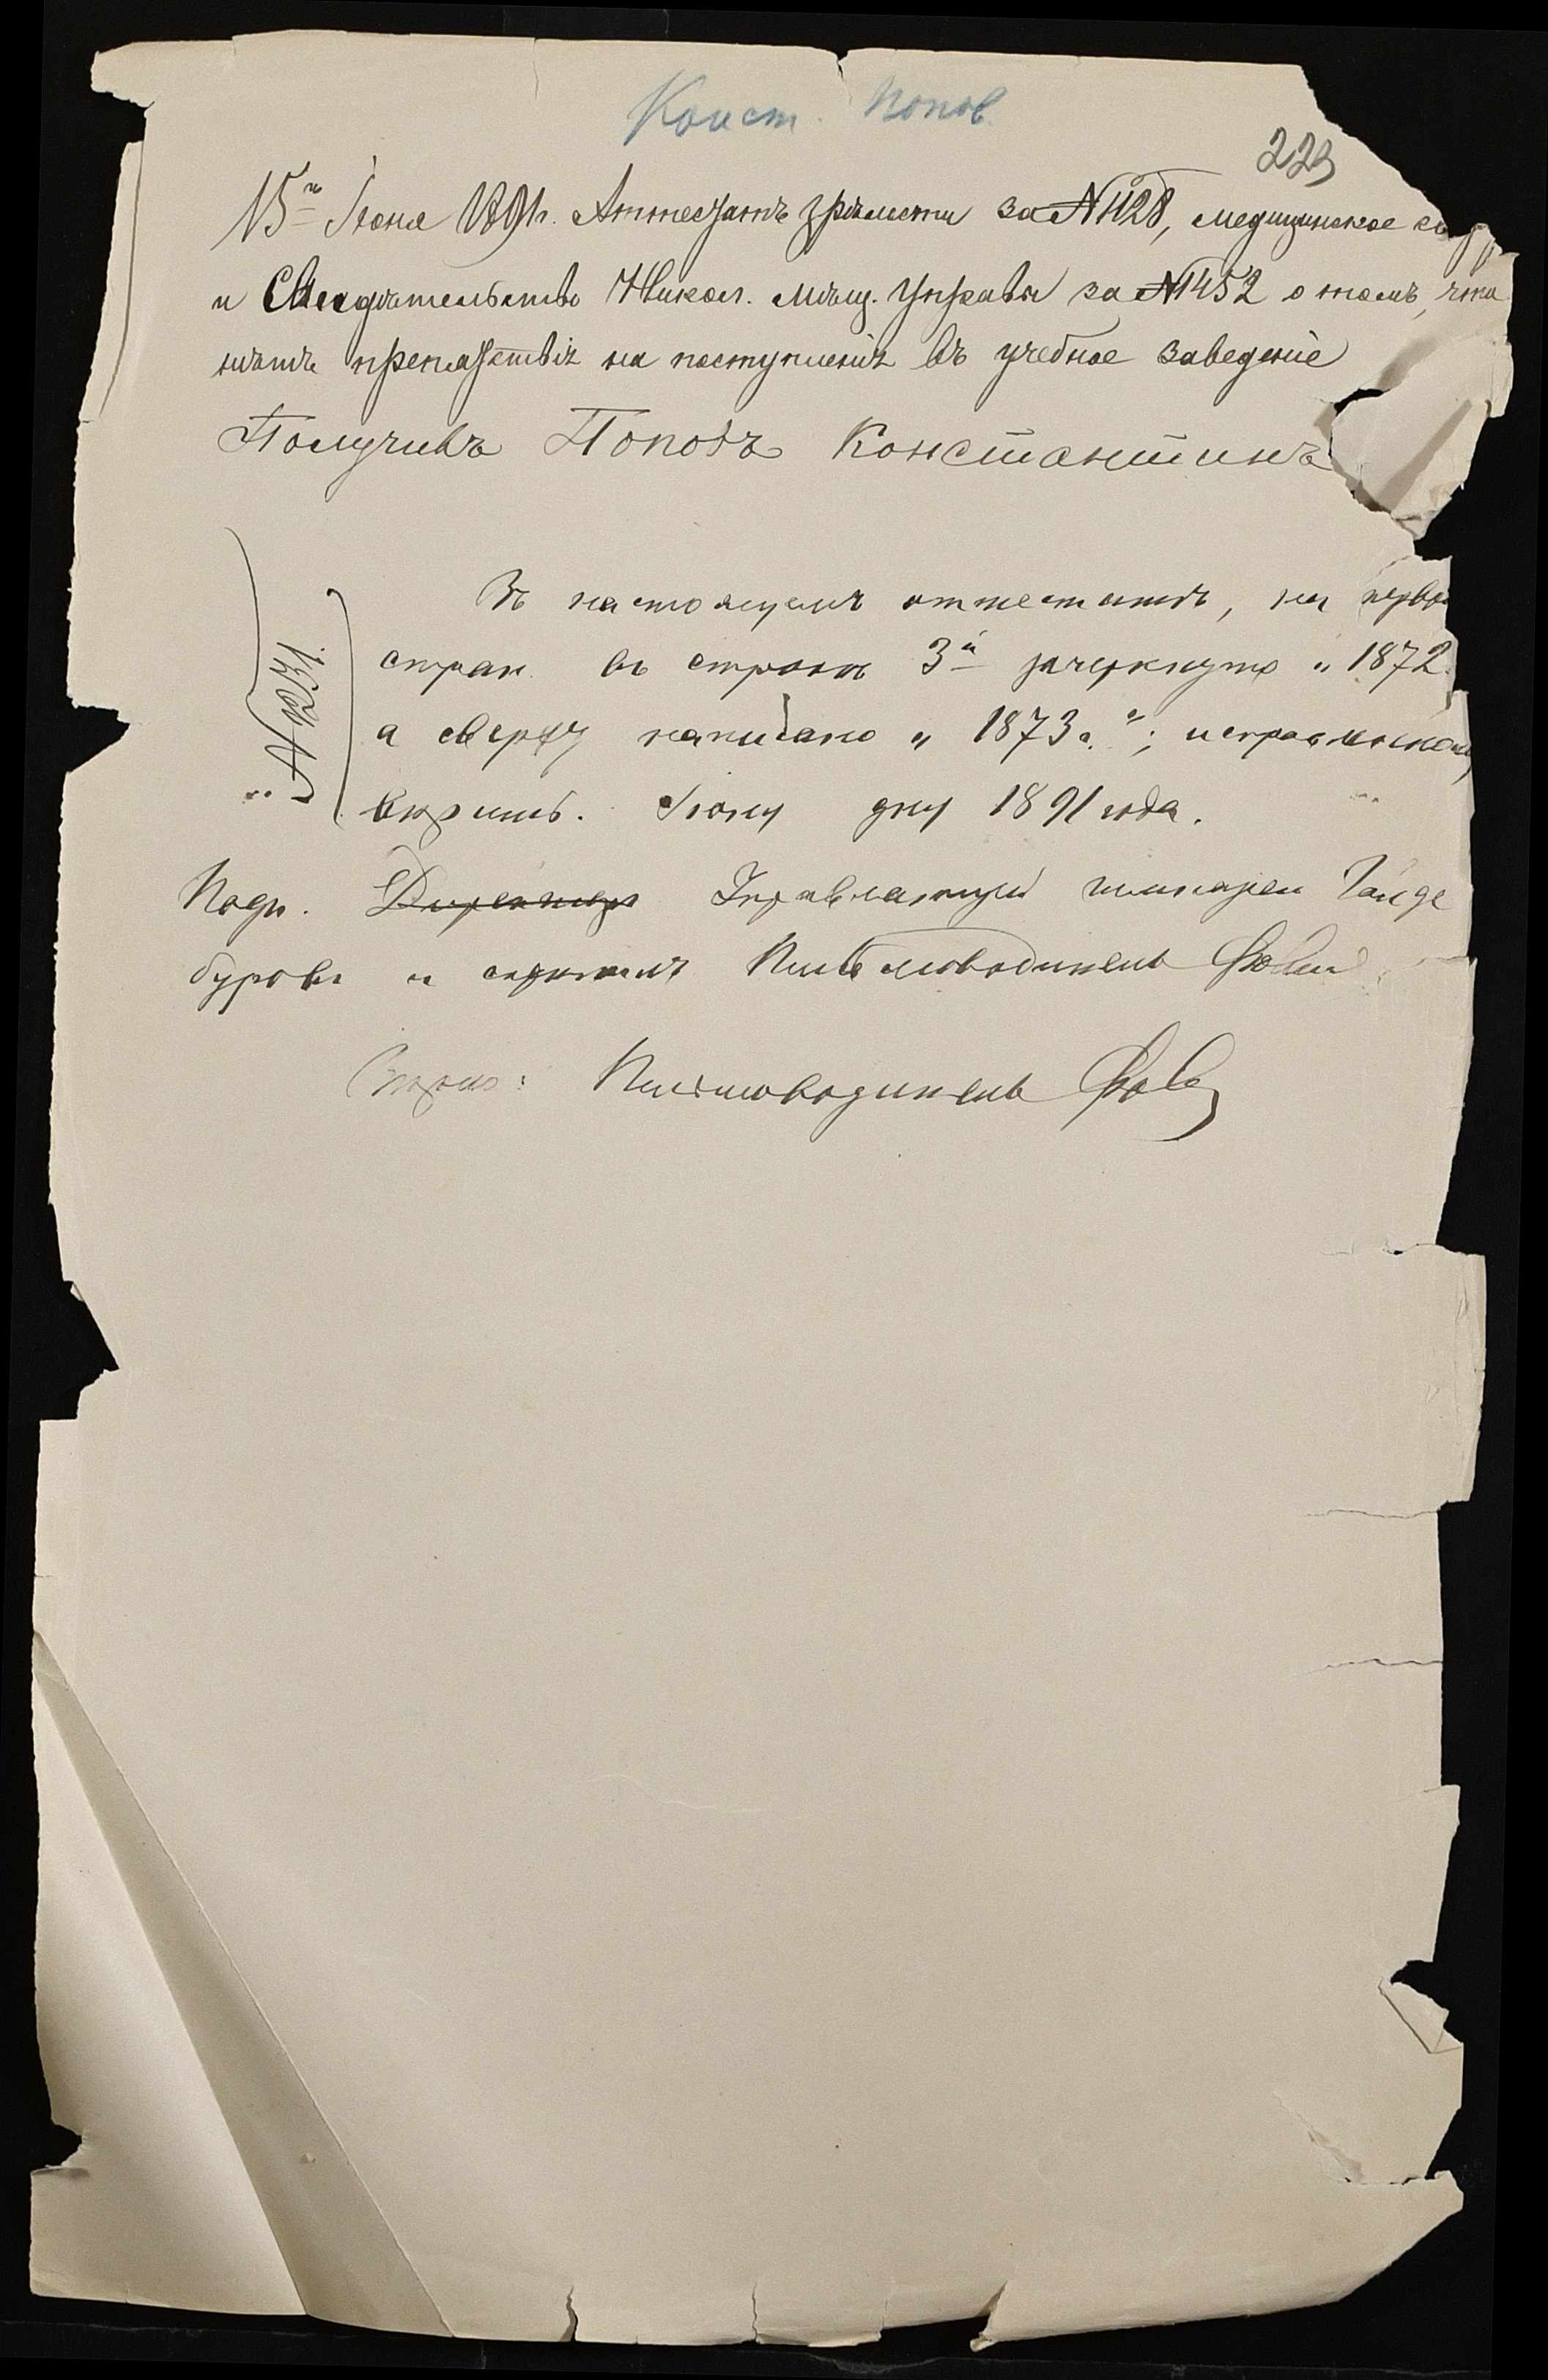 Конст. Попов.
223
15го Іюня 1891г. Аттестатъ зрѣлости за №1128, медицинское
и Свидѣтельство Никол. Мѣщ. Управы за №1452 о томъ, что
нѣтъ препятствія на поступленія въ учебное заведеніе
Получилъ Поповъ Константинъ
№ 1231.
Въ настоящемъ аттестатѣ, на перво
стран. въ строкѣ 3й зачеркнуто „1872
а сверху написано „1873г.“;
Іюня дня 1891 года.
Подп. Директоръ Управляющій гимназіею Гайде
буровъ и Письмоводитель
Письмоводитель